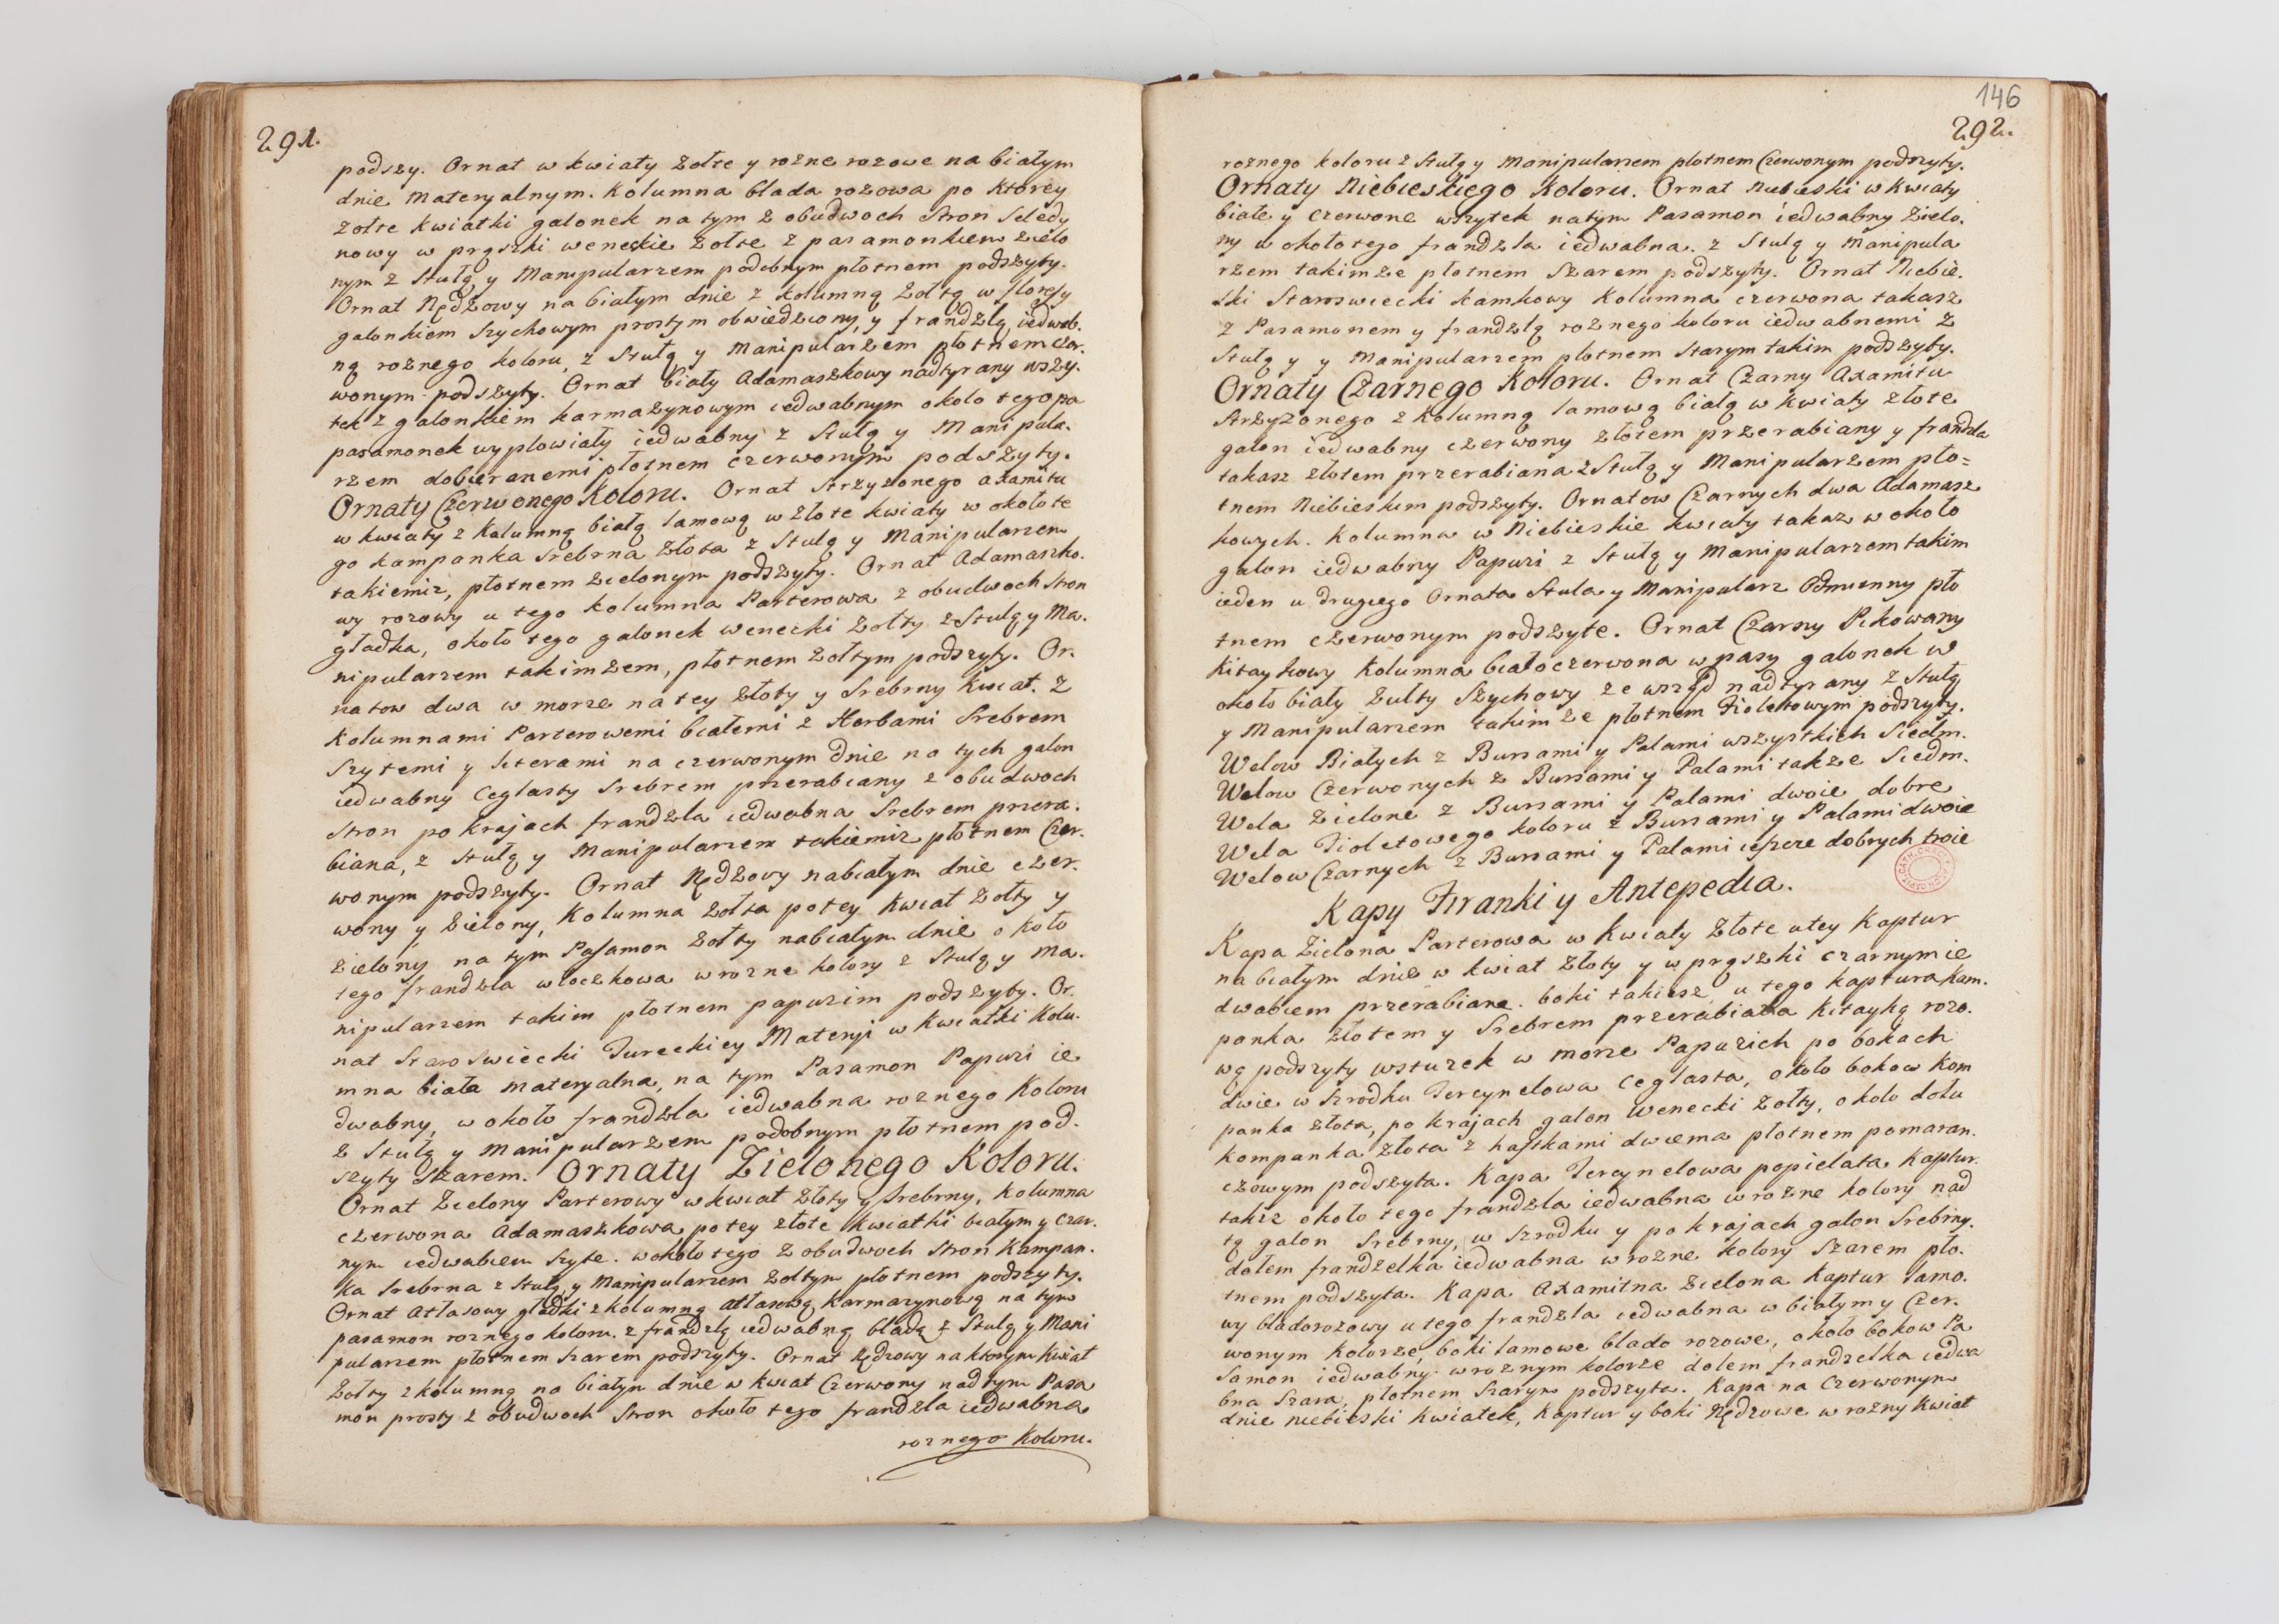 291.
podszy. Ornat w kwiaty zołte y rozne rozowe na białym
dnie materyalnym. Kolumna blada rozowa po ktorey
zołte kwiatki galonek na tym z obudwoch stron seledy
nowy w prązki weneckie zołte z pasamonkiem zielo
nym z stułą y Manipularzem podobnym płotnem podszyty.
Ornat Rędzowy na białym dnie z kolumną zołtą w floresy
galonkiem szychowym prostym obwiedziony, y frandzlą iedwab.
ną roznego koloru, z Stułą y Manipularzem płotnem czer.
wonym podszyty. Ornat biały Adamaszkowy nadtyrany wszy.
tek z galonkiem karmazynowym iedwabnym około tego pa
pasamonek wypłowiały iedwabny z Stułą y Manipula.
rzem dobieranemi płotnem czerwonym podszyty.
Ornaty Czerwonego Koloru. Ornat strzyzonego axamitu
w kwiaty z Kolumną białą lamową w złote kwiaty w około te
go kampanka srebrna złota z Stułą y Manipularzem
takiemiz, płotnem zielonym podszyty. Ornat Adamaszko.
wy rozowy u tego kolumna Parterowa z obudwoch stron
gładka, około tego galonek wenecki zołty z Stułą y Ma.
nipularzem takimzem, płotnem zołtym podszyty. Or.
natow dwa w morze na tey złoty y srebrny kwiat. z
Kolumnami Parterowemi białemi z Herbami srebrem
szytemi y literami na czerwonym dnie na tych galon
iedwabny ceglasty srebrem przerabiany z obudwoch
stron po krajach frandzla iedwabna srebrem przera.
biana, z stułą y Manipularzem takiemiz płotnem Czer.
wonym podszyty. Ornat Rędzowy na białym dnie czer.
wony y zielony, Kolumna zołta po tey kwiat zołty y
zielony na tym Pasamon zołty na białym dnie około
tego frandzla włoczkowa w rozne kolory z Stułą y Ma.
nipularzem takim płotnem papuzim podszyty. Or.
nat Staroswiecki Tureckiey Materyi w kwiatki Kolu.
mna biała materyalna, na tym Pasamon Papuzi ie
dwabny, w około frandzla iedwabna roznego Koloru
z Stułą y Manipularzem podobnym płotnem pod.
szyty szarem. Ornaty Zielonego Koloru.
Ornat Zielony Parterowy w kwiat złoty y srebrny, Kolumna
czerwona Adamaszkowa po tey złote kwiatki białym y czar.
nym iedwabiem szyte. wokoło tego z obudwoch stron Kampan.
ka srebrna z Stułą y Manipularzem zołtym płotnem podszyty.
Ornat Atłasowy gładki z kolumną atłasową karmazynową na tym
pasamon roznego koloru. z frandzlą iedwabną bladą z Stułą y Mani
pularzem płotnem szarem podszyty. Ornat Rędzowy na ktorym kwiat
zołty z kolumną na białym dnie w kwiat Czerwony nad tym Pasa
mon prosty z obudwoch stron około tego frandzla iedwabna
roznego Koloru.
146
292.
roznego koloru z Stułą y Manipularzem płotnem Czerwonym podszyty.
Ornaty Niebieskiego Koloru. Ornat Niebieski w kwiaty
białe y czerwone wszytek na tym Pasamon iedwabny zielo.
ny w około tego frandzla iedwabna. z Stułą y Manipula
rzem takimze płotnem szarem podszyty. Ornat Niebie.
ski Staroswiecki kamkowy Kolumna czerwona takasz
z Pasamonem y frandzlą roznego koloru iedwabnemi z
Stułą y y Manipularzem płotnem starym takim podszyty.
Ornaty Czarnego Koloru. Ornat Czarny Axamitu
strzyzonego z kolumną lamową białą w kwiaty złote
galon iedwabny czerwony złotem przerabiany y frandzla
takasz złotem przerabiana z Stułą y Manipularzem pło=
tnem Niebieskim podszyty. Ornatow Czarnych dwa Adamasz
kowych. Kolumna w Niebieskie kwiaty takaz w około
galon iedwabny Papuzi z Stułą y Manipularzem takim
ieden u drugiego Ornata Stuła y Manipularz Odmienny pło
tnem czerwonym podszyte. Ornat Czarny Pikowany
Kitaykowy Kolumna białoczerwona w pasy galonek w
około biały zułty szychowy ze wsząd nadtyrany z Stułą
y Manipularzem takimze płotnem Fioletowym podszyty.
Welow Białych z Bursami y Palami wszystkich Siedm.
Welow Czerwonych z Bursami y Palami takze Siedm.
Wela Zielone z Bursami y Palami dwoie dobre
Wela Fioletowego koloru z Bursami y Palami dwoie
Welow Czarnych z Bursami y Palami ieszcze dobrych troie
Kapy Firanki y Antepedia.
Kapa Zielona Parterowa w kwiaty złote u tey Kaptur
na białym dnie w kwiat złoty y w prązki czarnym ie
dwabiem przerabiane. boki takiesz u tego kaptura kam.
panka złotem y srebrem przerabiana Kitayką rozo.
wą podszyty wstuzek w morze Papuzich po bokach
dwie w szrodku Tercynelowa ceglasta, około bokow Kom
panka złota, po krajach galon wenecki zołty, około dołu
kompanka złota z haftkami dwiema płotnem pomaran.
czowym podszyta. Kapa Tercynelowa popielata kaptur.
takiz około tego frandzla iedwabna w rozne kolory nad
tą galon srebrny, w szrodku y po krajach galon srebrny.
dołem frandzelka iedwabna w rozne kolory szarem pło.
tnem podszyta. Kapa Axamitna zielona Kaptur lamo.
wy bladorozowy u tego frandzla iedwabna w białym y Czer.
wonym Kolorze, boki lamowe blado rozowe, około bokow Pa
samon iedwabny w roznym kolorze dołem frandzelka iedwa
bna szara, płotnem szarym podszyta. Kapa na Czerwonym
dnie niebieski kwiatek, Kaptur y boki Rędzowe w rozny kwiat